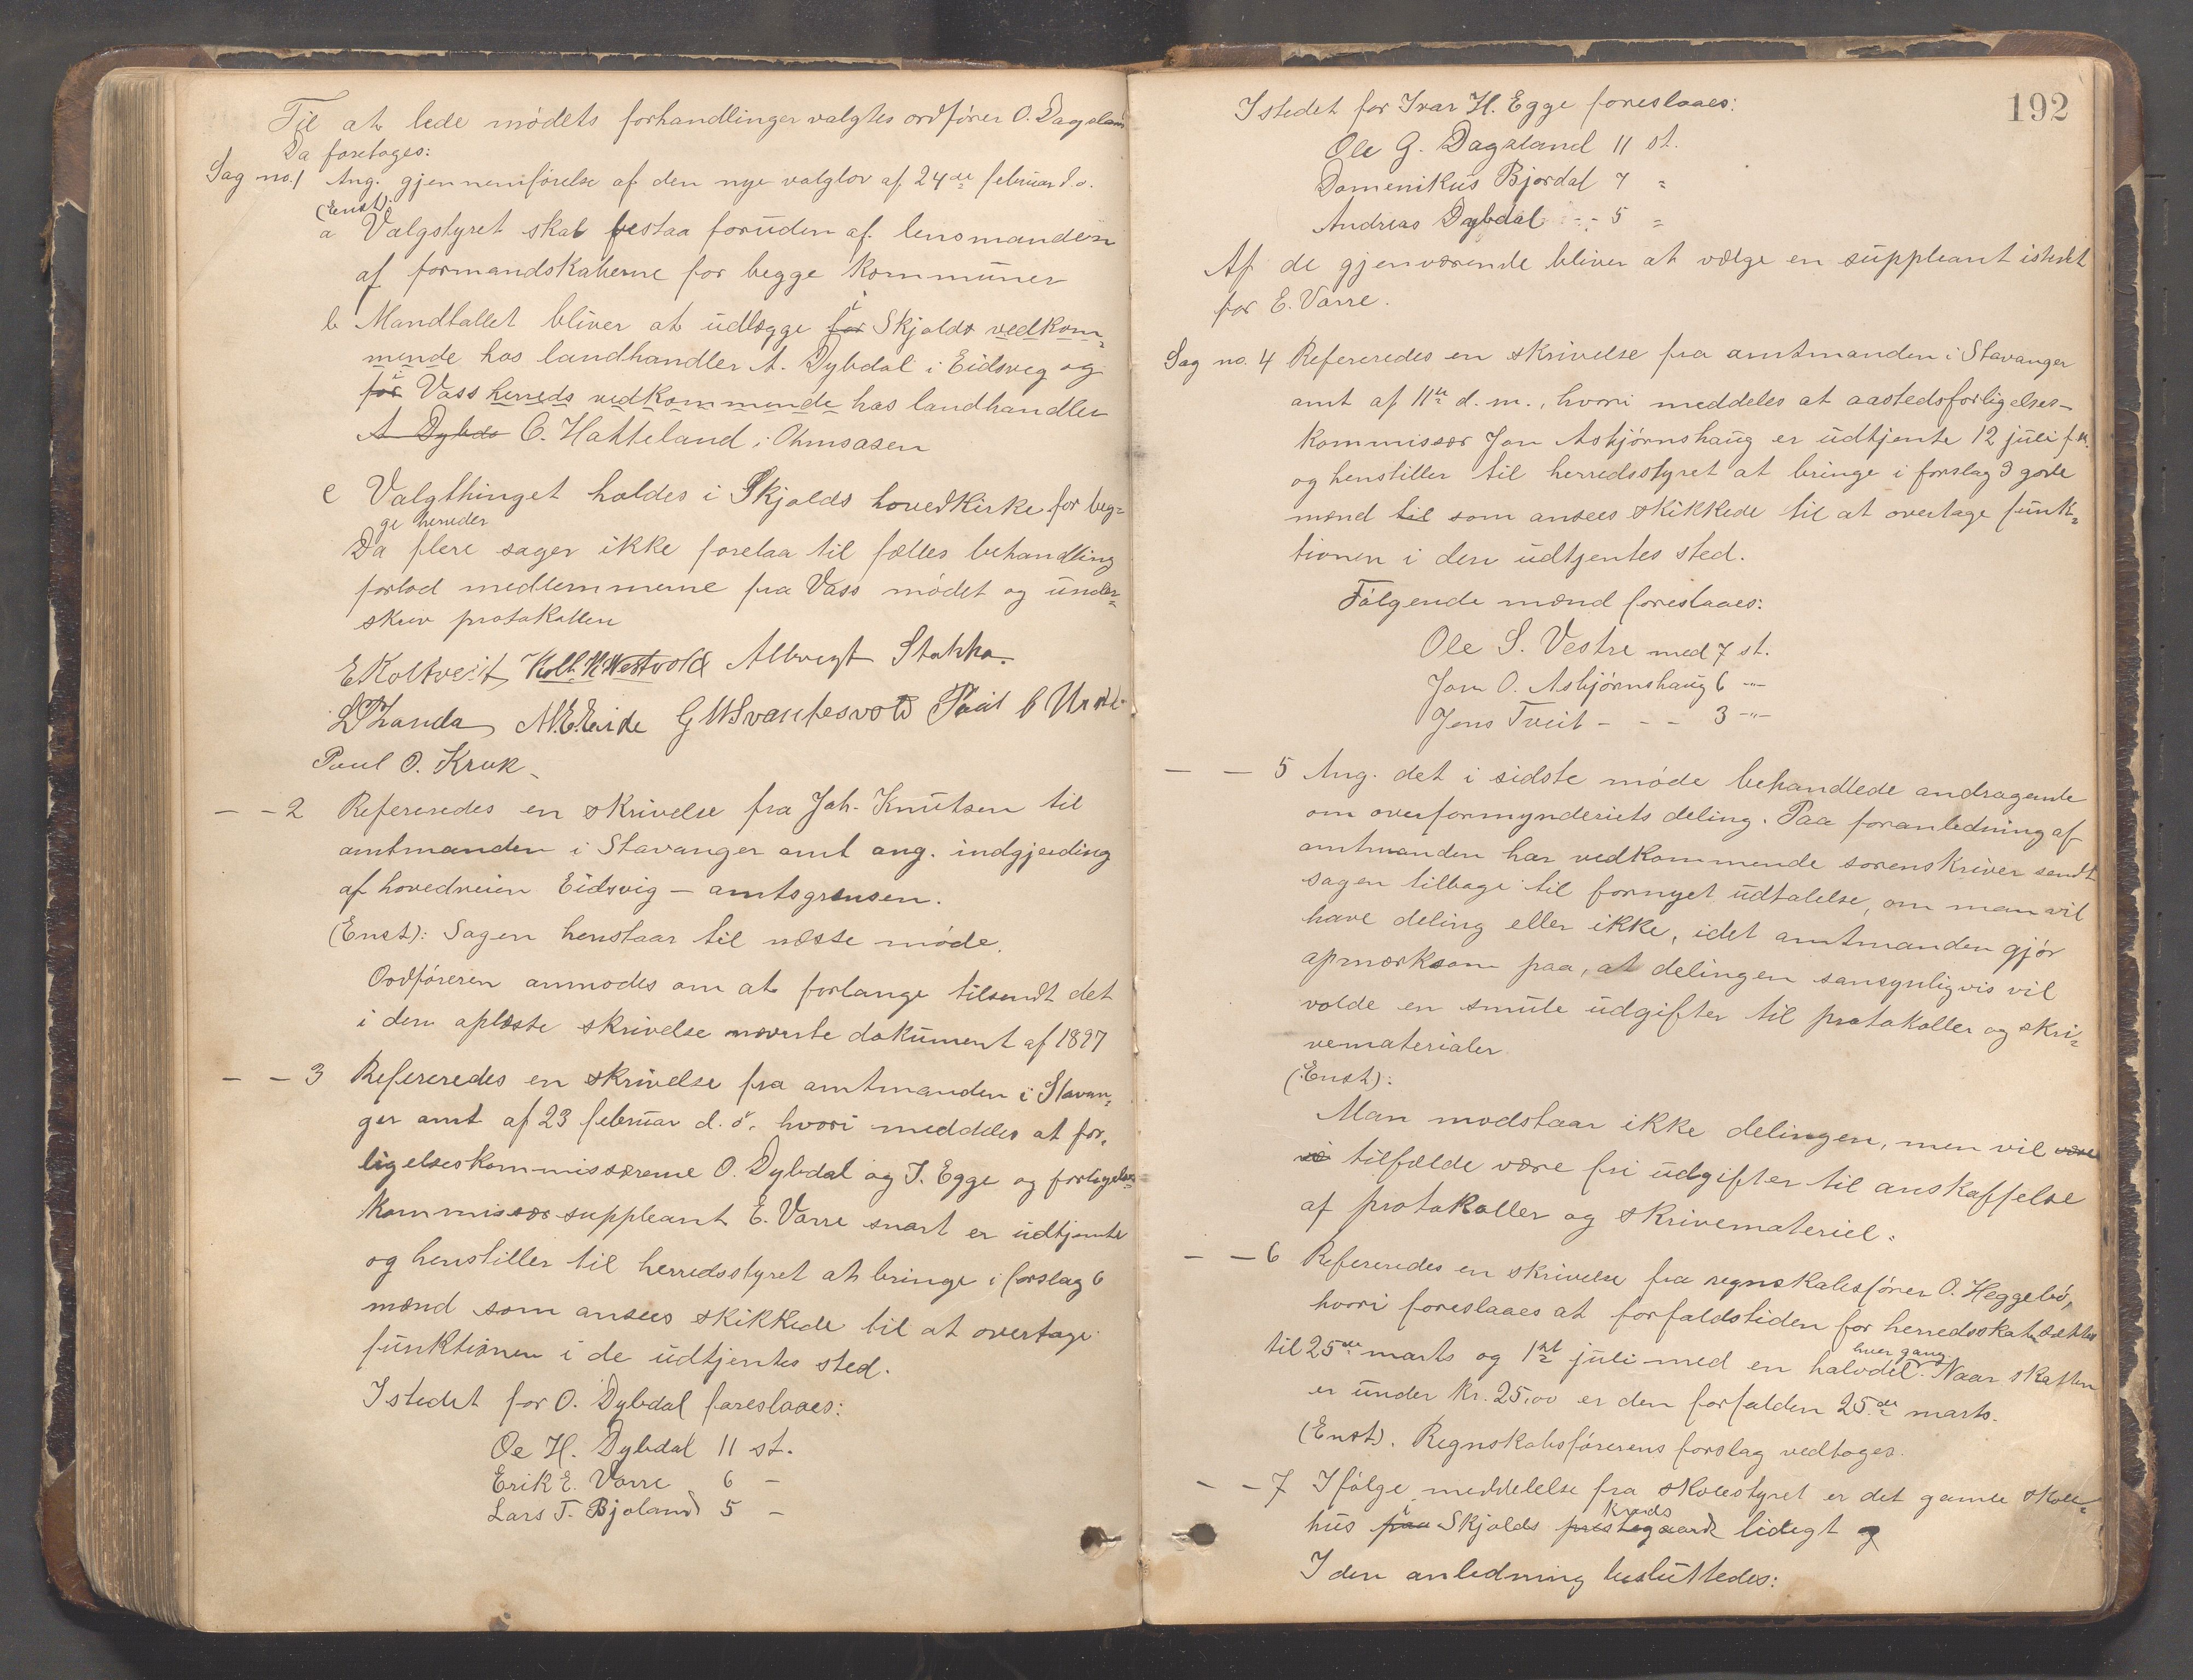 Til at lede mødets forhandlinger valgtes ordfører O. Dagsland
Da foretages:
Sag no. 1 Ang. gjennemførelse af den nye valglov af 24de februar d.a.
(Enst):
a Valgstyret skal bestaa foruden af lensmanden
af formandskaberne for begge kommuner
b Mandtallet bliver at udlægge for i Skjolds vedkom-
mende hos landhandler A. Dybdal i Eidsvig og
for i Vass herreds vedkommende hos landhandler
A Dybda O. Hatteland i Ølmsaasen
c Valgthinget holdes i Skjolds hovedkirke for beg-
ge herreder
Da flere sager ikke forelaa til fælles behandling
forlod medlemmerne fra Vass mødet og under-
skrev protokollen
E Koltveit Kolb. K Westvold Albregt Stakka.
L P Landa N. E. Eide G W Svantesvold Paul
Poul O. Krak
– – 2 Refereredes en skrivelse fra Joh. Knutsen til
amtmanden i Stavanger amt ang. indgjerding
af hovedveien Eidsvig – amtsgrensen.
(Enst): Sagen henstaar til næste møde.
Ordføreren anmodes om at forlange tilsendt det
i den oplæste skrivelse nævnte dokument af 1897
– – 3 Refereredes en skrivelse fra amtmanden i Stavan-
ger amt af 23 februar d. å. hvori meddeles at for-
ligelseskommissærerne O. Dybdal og I. Egge og forligelses-
kommissærsuppleant E. Varre snart er udtjente
og henstiller til herredsstyret at bringe i forslag 6
mænd som ansees skikkede til at overtage
funktionen i de udtjentes sted.
Istedet for O. Dybdal foreslaaes:
Oe H. Dybdal 11 st.
Erik E. Varre 6 –
Lars T. Bjoland 5 –
192
Istedet for Ivar H. Egge foreslaaes:
Ole G. Dagsland 11 st.
Domenikus Bjordal 7 =
Andreas Dybdal - - 5 =
Af de gjenværende bliver at vælge en suppleant istedet
for E. Varre.
Sag no. 4 Refereredes en skrivelse fra amtmanden i Stavanger
amt af 11te d. m., hvori meddeles at aastedsforligelses-
kommissær Jon Asbjørnshaug er udtjente 12 juli f.k.
og henstiller til herredsstyret at bringe i forslag 3 gode
mænd til som ansees skikkede til at overtage funk-
tionen i den udtjentes sted.
Følgende mænd foreslaaes:
Ole S. Vestre med 7 st.
Jon O. Asbjørnshaug 6 -"-
Jens Tveit - - - 3 -"-
– – 5 Ang. det i sidste møde behandlede andragende
om overformynderiets deling. Paa foranledning af
amtmanden har vedkommende sorenskriver sendt
sagen tilbage til fornyet udtalelse, om man vil
have deling eller ikke, idet amtmanden gjør
opmærksom paa, at delingen sansynligvis vil
volde en smule udgifter til protokoller og skri-
vematerialer
(Enst):
Man modstaar ikke delingen, men vil være
tilfælde være fri udgifter til anskaffelse
af protokoller og skrivemateriel.
– – 6 Refereredes en skrivelse fra regnskabsfører O. Heggebø,
hvori foreslaaes at forfaldstiden for herredsskaten sættes
til 25de marts og 1st juli med en halvdel hver gang. Naar skatten
er under kr. 25,00 er den forfalden 25.de marts.
(Enst). Regnskabsførerens forslag vedtoges.
– – 7 Ifølge meddelelse fra skolestyret er det gamle skole-
hus paa i Skjolds prestegaard kreds ledigt og
I den anledning besluttedes: